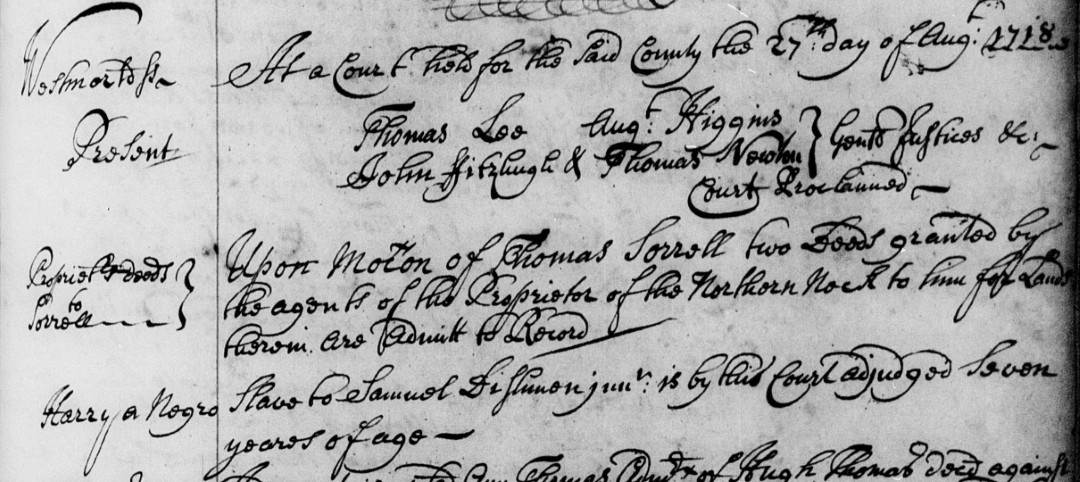 Westmorld ss. At a Court held for the said County the 27th. day of Augt: 1718.
Present Thomas Lee Augt: Higgins } Gent Justices &c:
John Fitzhugh & Thomas Newton
Court Proclaimed
Upon Moton of Thomas Sorrell two Deeds granted by
Propriet deeds } the agents of the Proprietor of the Northern Neck to him for Lands
to
Sorrell therein are admitt to Record
Harry a Negro Slave to Samuel junr: is by this Court adjudged Seven
yeares of age
Thomas Admx of Hugh Thomas decd against